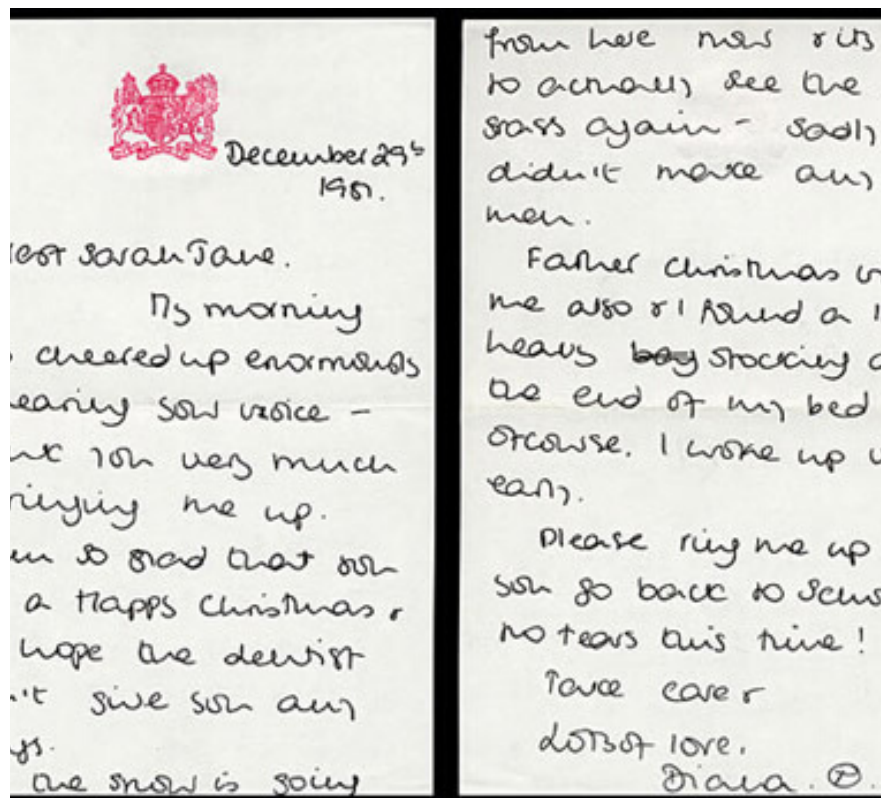 December 29th
1981.
est Sarah Jane.
My morning
cheered up enormously
earing your voice -
you very much
ringing me up.
so glad that you
a Happy Christmas &
hope the dentist
n't give you any
gs.
the snow is going
from here now & its
to actually see the
grass again - sadly
didn't make any
men.
Father Christmas
me also & I found a
heavy stocking
the end of my bed
ofcourse. I woke up
early.
Please ring me up
you go back to Scho
no tears this time!
Take care &
Lots of love.
Diana.